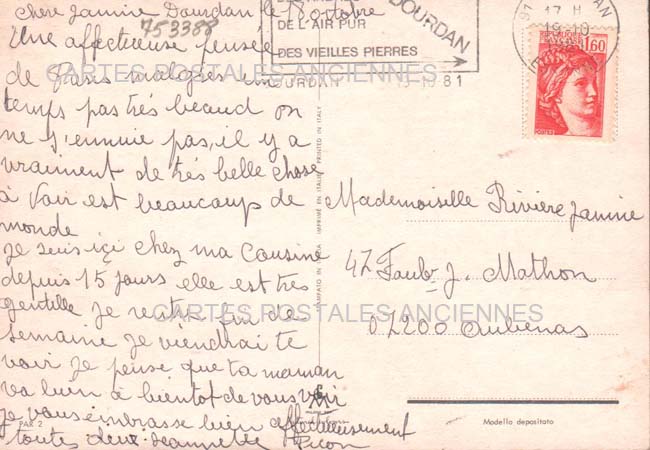 chère Jannine Dourdan le 18 octobre
753388
Une affectueuse pensée
de Paris malgrés un
temps pas trés beaud on
ne s'ennuie pas, il y a
vraiment de trés belle chose
à voir est beaucoups de
monde
je suis içi chez ma Cousine
depuis 15 jours elle est trés
gentille je rentre fin de
semaine je viendrai te
voir je pense que ta maman
va bien à bientot de vous voir
je vous embrasse bien affectueusement
toutes deux. Jeannette Picon
DE L'AIR PUR
DES VIEILLES PIERRES
DOURDAN
OURDAN
19-10-81
91
DAN
17 H
19-10
1,60
POSTES
CARTES POSTALES ANCIENNES
CARTES POSTALES ANCIENNES
Mademoiselle Rivière Janine
47 Faubg J. Mathon
07200 Aubenas
IMPRIMÉ EN ITALIE PRINTED IN ITALY
PAR 2
Modello depositato